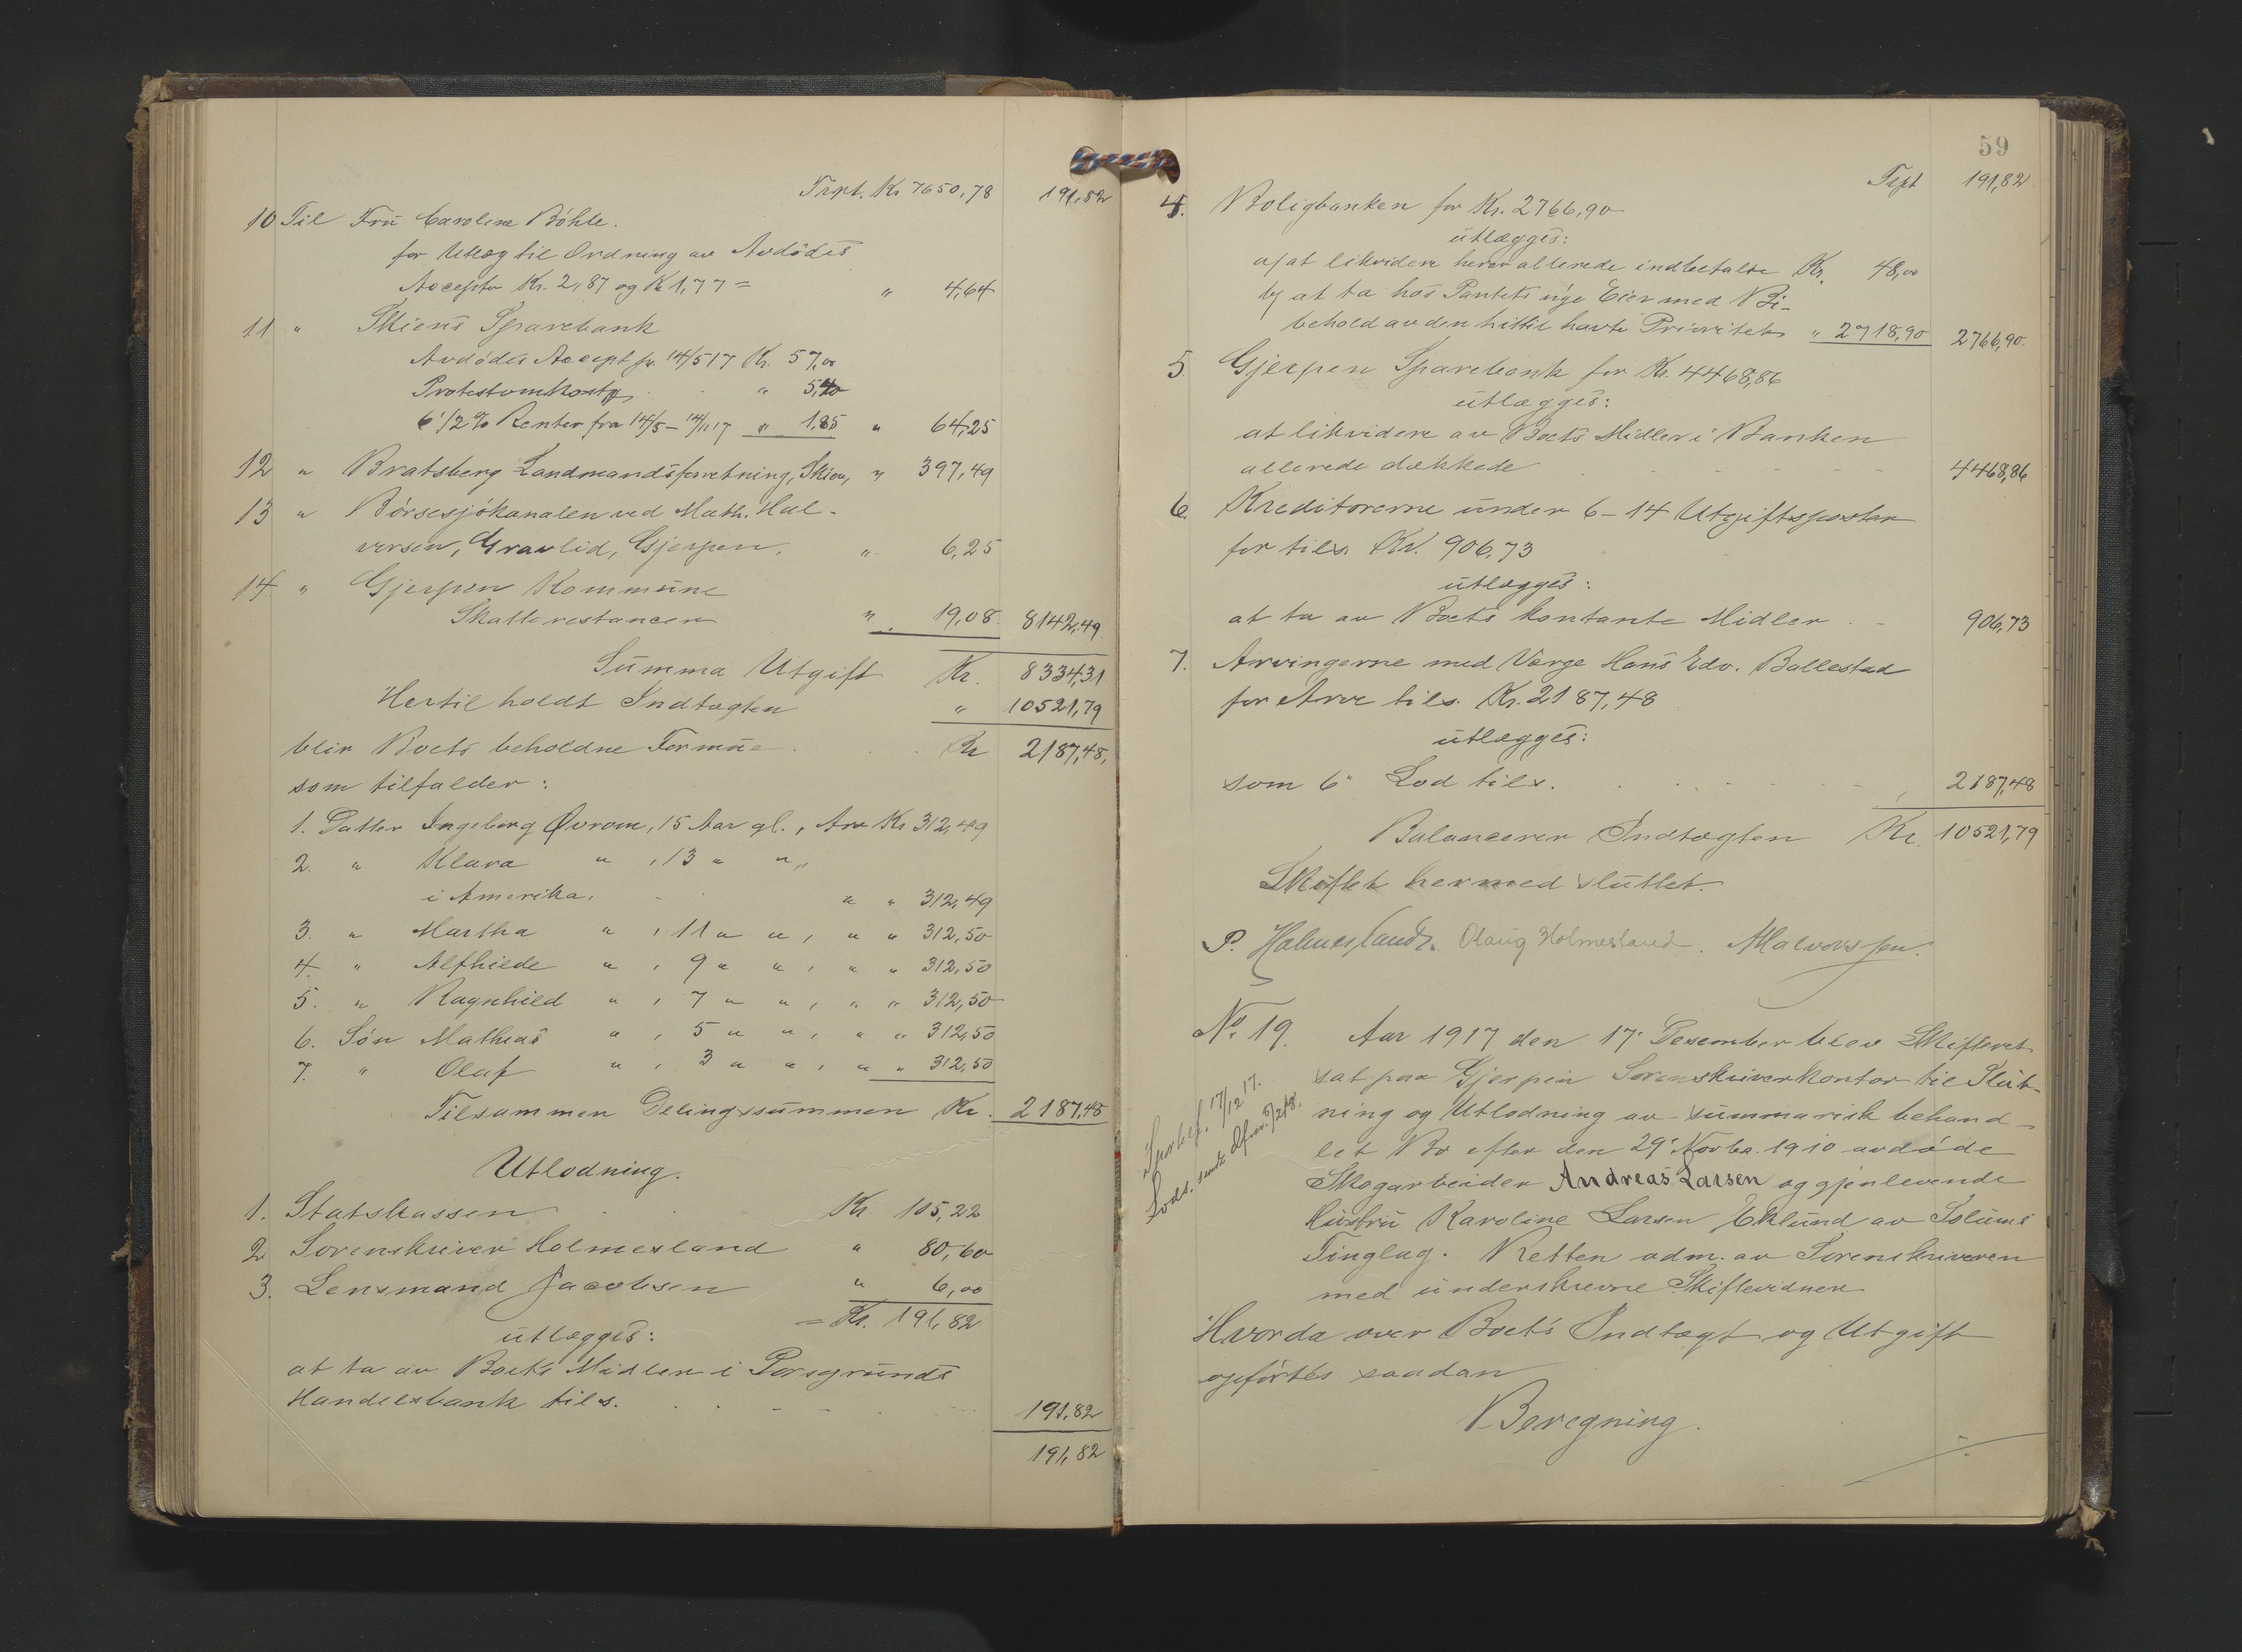 Trpt. Kr. 7650,78 191,82
10 Til Frü Caroline Böhle.
for Utlæg til Ordning av Avdödes
Accepter Kr. 2,87 og Kr 1,77 = " 4,64
11 " Skiens Sparebank
Avdödes Accept pr. 14/5 17 Kr. 57,00
Protestomkostn. " 5,40
6 1/2 % Renter fra 14/5 – 14/11 17 " 1,85 " 64,25
12 " Bratsberg Landmandsforretning, Skien, " 397,49
13 " Börsesjökanalen ved Math. Hal-
versen, Gravlid, Gjerpen, " 6,25
14 " Gjerpen Kommüne
Skatterestancer " 19,08 8142,49
Sümma Utgift Kr. 8334,31
Hertil holdt Indtægten " 10521,79
blir Boets beholdne Formue Kr 2187,48,
som tilfalder:
1. Datter Ingeborg Øvrom, 15 Aar gl., Arv Kr 312,49
2. " Klara " , 13 " " ,
i Amerika. " " 312,49
3. " Martha " , 11 " " , " " 312,50
4. " Alfhilde " , 9 " " , " " 312,50
5. " Ragnhild " , 7 " " , " " 312,50
6. Sön Mathias " , 5 " " , " " 312,50
7. " Olaf " , 3 " " , " " 312,50
Tilsammen Delingssümmen Kr. 2187,48
Utlodning.
1. Statskassen Kr 105,22
2 Sorenskriver Holmesland " 80,60
3. Lensmand Jacobsen " 6,00
= Kr. 191,82
ütlægges:
at ta av Boets Midler i Porsgründs
Handelsbank tils. 191,82
191,82
59
Trpt 191,82
4. Boligbanken for Kr. 2766,90
ütlægges:
a/ at likvidere herav allerede indbetalte Kr. 48,00
b/ at ta hos Pantets nye Eier med Bi-
behold av den hittil havte Prioritet " 2718,90 2766,90
5. Gjerpen Sparebank for Kr. 4468,86
ütlægges:
at likvidere av Boets Midler i Banken
allerede dækkede 4468,86
6. Kreditorerne ünder 6 – 14 Utgiftsposter
for tils. Kr. 906,73
ütlægges:
at ta av Boets kontante Midler 906,73
7. Arvingerne med Værge Hans Edv. Ballestad
for Arv tils. Kr. 2187,48
ütlægges:
som 6" Lod tils. 2187,48
Balancerer Indtægten Kr. 10521,79
Skiftet hermed slüttet.
P. Holmesland. Olaug Holmesland. Halvorsen.
No 19. Aar 1917 den 17' Desember blev Skifteret
sat paa Gjerpen Sorenskriverkontor til Slüt-
ning og Utlodning av sümmarisk behand-
let Bo efter den 29' Novbr. 1910 avdöde
Skogarbeider Andreas Larsen og gjenlevende
Hüstrü Karoline Larsen Eklünd av Solüms
Tinglag. Retten adm. av Sorenskriveren
med ünderskrevne Skiftevidner
17/12 17.
Lods. sendt 5/2 18.
Hvorda over Boets Indtægt og Utgift
opförtes saadan
Beregning.